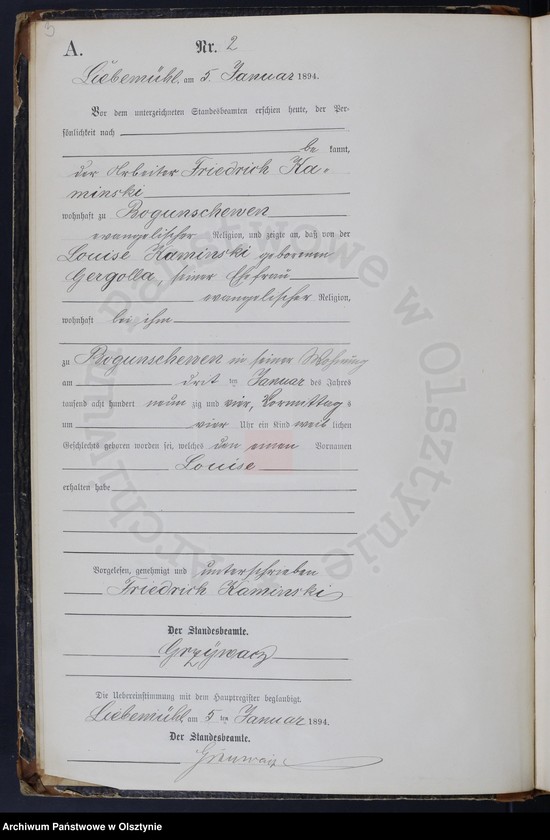 3
A. Nr. 2
Liebemühl, am 5. Januar 1894.
Vor dem unterzeichneten Standesbeamten erschien heute, der Per-
sönlichkeit nach
be kannt,
der Arbeiter Friedrich Ka-
minski
wohnhaft zu Bogunschewen
evangelischer Religion, und zeigte an, daß von der
Louise Kaminski geborenen
Gergolla, seiner Ehefrau
evangelischer Religion,
wohnhaft bei ihm
zu Bogunschewen in seiner Wohnung
am drit ten Januar des Jahres
tausend acht hundert neun zig und vier, Vormittags
um vier Uhr ein Kind weib lichen
Geschlechts geboren worden sei, welches den einen Vornamen
Louise
erhalten habe
Vorgelesen, genehmigt und unterschrieben
Friedrich Kaminski
Der Standesbeamte.
Grzywacz
Die Uebereinstimmung mit dem Hauptregister beglaubigt.
Liebemühl, am 5 ten Januar 1894.
Der Standesbeamte.
Archiwum Państwowe w Olsztynie
Archiwum Państwowe w Olsztynie